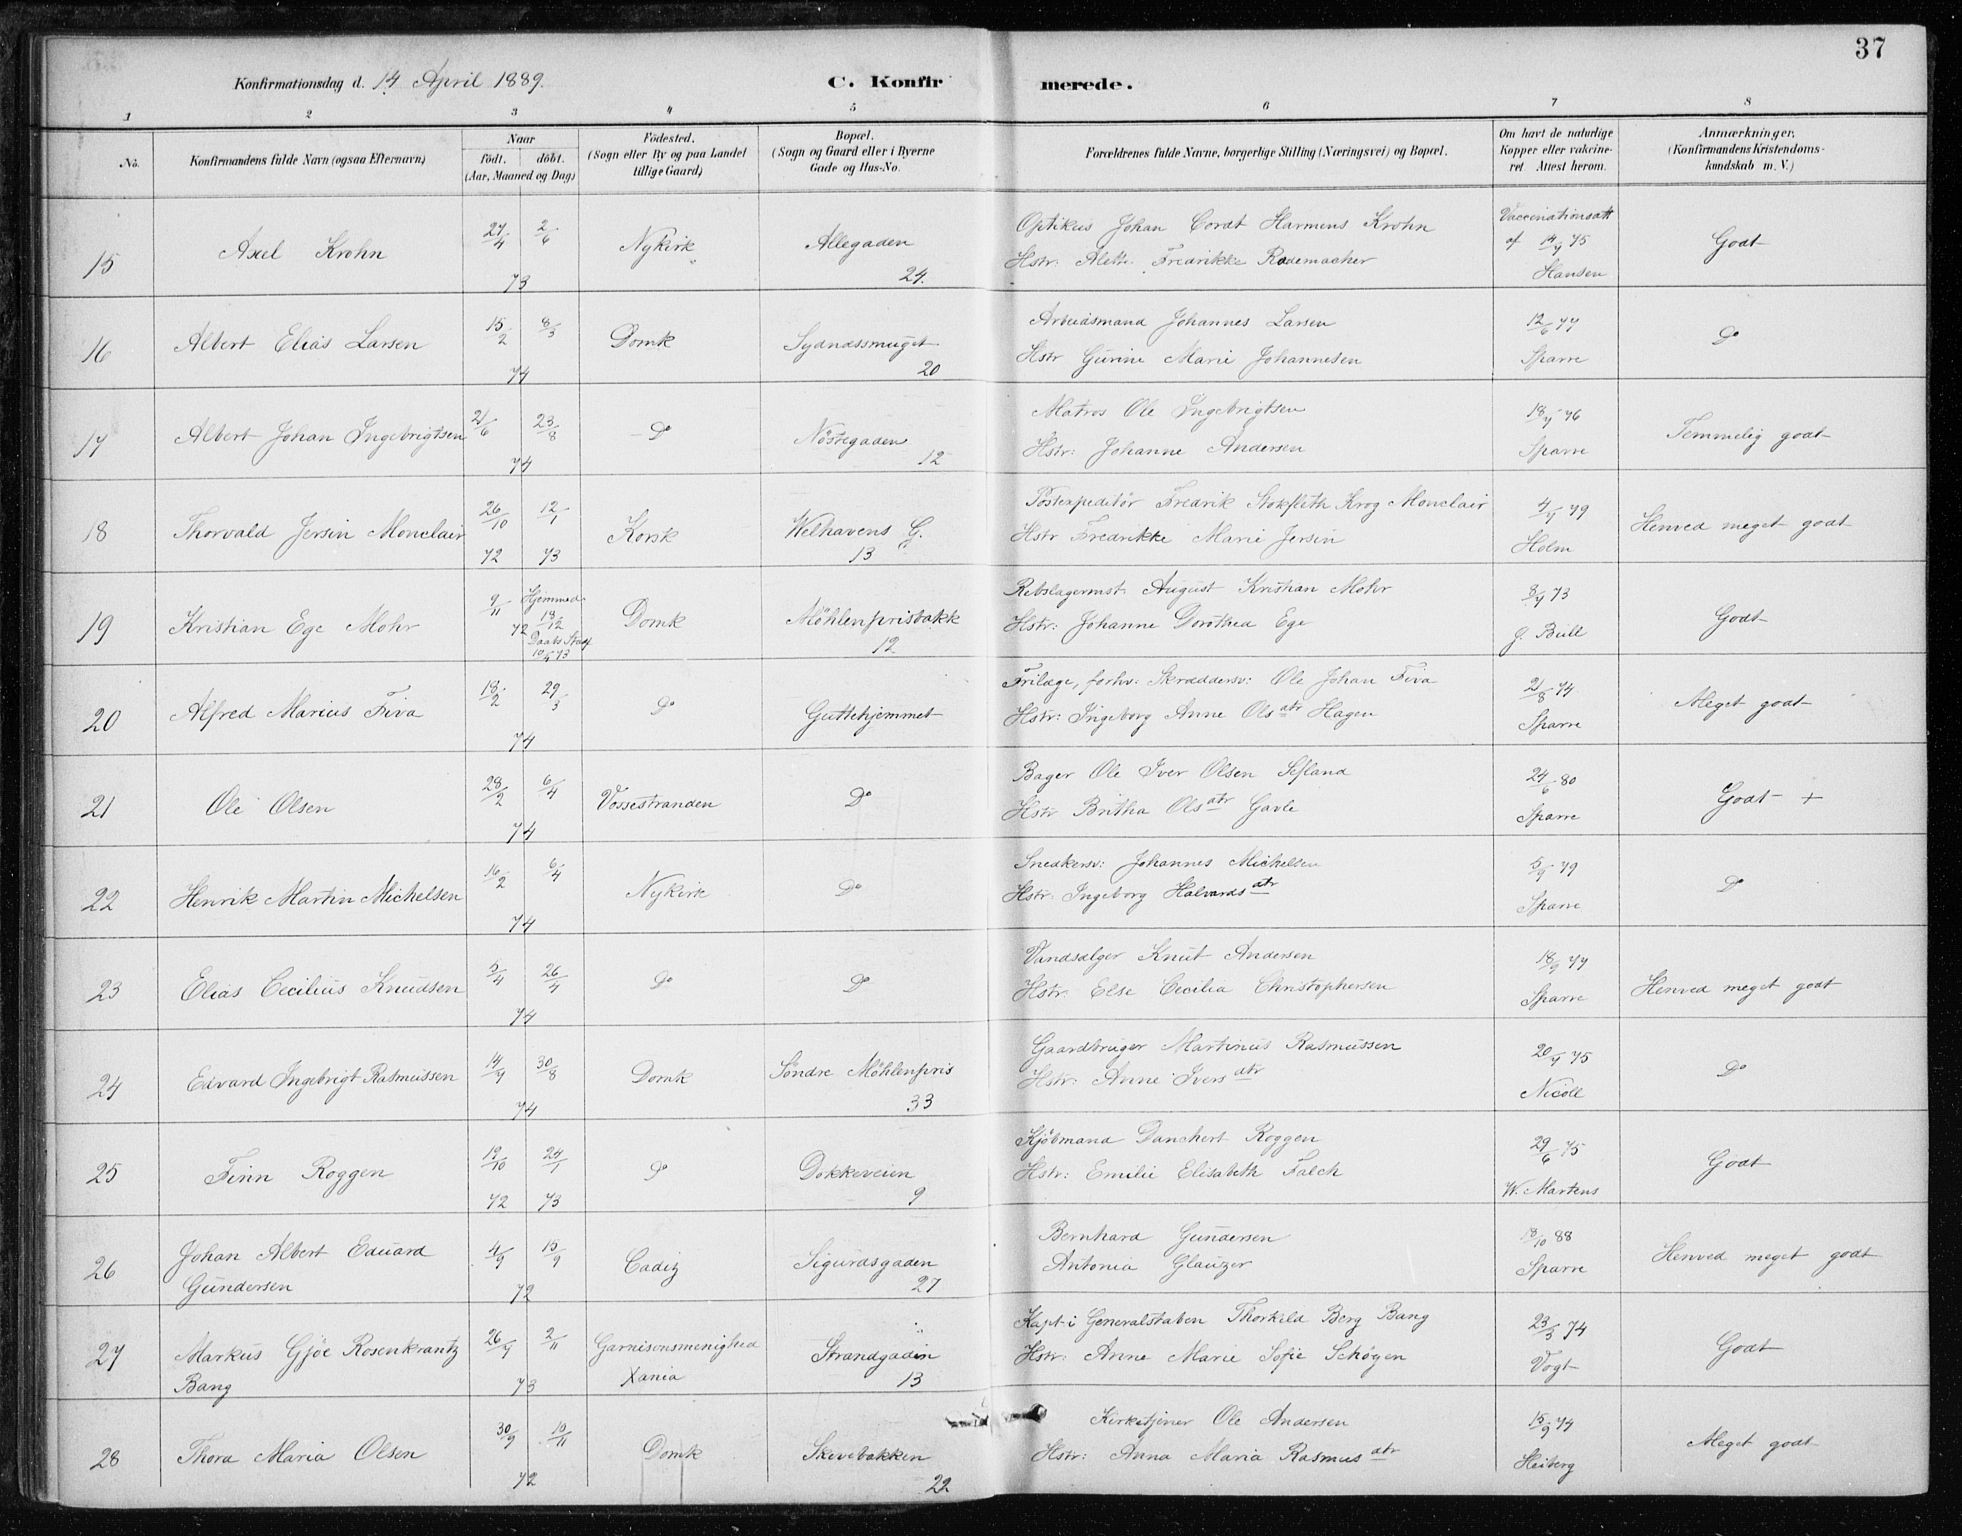 37
Konfirmationsdag d. 14 April 1889.
C. Konfirmerede.
1 2 3 4 5 6 7 8
No.
Konfirmandens fulde Navn (ogsaa Efternavn)
Naar
födt. döbt.
(Aar, Maaned og Dag)
Födested.
(Sogn eller By og paa Landet
tillige Gaard)
Bopæl.
(Sogn og Gaard eller i Byerne
Gade og Hus-No.
Forældrenes fulde Navne, borgerlige Stilling (Næringsvei) og Bopæl.
Om havt de naturlige
Kopper eller vakcine-
ret. Attest herom.
Anmærkninger.
(Konfirmandens Kristendoms-
kundskab m. V.)
15 Axel Krohn 27/4 2/6 73 Nykirk Allegaden 24.
Optikus Johan Cordt Harmens Krohn
Hstr: Aleth. Fredrikke Rademacher
Vaccinationsatt
af 14/7 75
Hansen
Godt
16 Albert Elias Larsen 15/2 8/3 74 Domk Sydnæssmuget 20
Arbeidsmand Johannes Larsen
Hstr Gurine Marie Johannesen
12/6 77
Sparre
Do
17 Albert Johan Ingebrigtsen 21/6 23/8 74 Do Nöstegaden 12
Matros Ole Ingebrigtsen
Hstr: Johanne Andersen
18/7 76
Sparre
Temmelig godt
18 Thorvald Jersin Monclair 26/10 72 12/1 73 Korsk Welhavens G. 13
Postexpeditør Fredrik Stokfleth Krog Monclair
Hstr Fredrikke Marie Jersin
4/7 79
Holm
Henved meget godt
19 Kristian Ege Mohr 9/11 72 Hjemmed. 18/12 Daabs Stadf 10/4 73 Domk Möhlenprisbakk 12
Rebslagermst. August Kristian Mohr
Hstr: Johanne Dorothea Ege
8/7 73
J. Bull
Godt
20 Alfred Marius Fiva 18/2 29/3 74 Do Guttehjemmet
Frilæge, forhv: Skræddersv: Ole Johan Fiva
Hstr: Ingeborg Anne Olsdtr Hagen
21/8 74
Sparre
Meget godt
21 Ole Olsen 28/2 6/4 74 Vossestranden Do
Bager Ole Iver Olsen Sefland
Hstr Britha Olsdtr Gavle
24/6 80
Sparre
Godt +
22 Henrik Martin Michelsen 16/2 6/4 74 Nykirk Do
Snedkersv: Johannes Michelsen
Hstr: Ingeborg Halvardsdtr
5/9 79
Sparre
Do
23 Elias Cecilius Knudsen 5/4 26/4 74 Do Do
Vandsælger Knut Andersen
Hstr. Else Cecilia Christophersen
18/9 77
Sparre
Henved meget godt
24 Edvard Ingebrigt Rasmussen 14/7 30/8 74 Domk Söndre Möhlenpris 33
Gaardbruger Martinus Rasmussen
Hstr: Anne Iversdtr
20/7 75
Nicoll
Do
25 Finn Roggen 19/10 72 24/1 73 Do Dokkeveien 9
Kjöbmand Danchert Roggen
Hstr: Emilie Elisabeth Falch
29/6 75
W. Martens
Godt
26 Johan Albert Eduard
Gundersen 4/9 15/9 72 Cadiz Sigurdsgaden 27
Bernhard Gundersen
Antonia Glauzer
18/10 88
Sparre
Henved meget godt
27 Markus Gjöe Rosenkrantz
Bang 26/9 2/11 73 Garnisonsmenighed
Xania Strandgaden 13
Kapt. i Generalstaben Thorkild Berg Bang
Hstr: Anne Marie Sofie Schøgen
23/3 74
Vogt
Godt
28 Thora Maria Olsen 30/9 10/11 72 Domk Skevebakken 22
Kirketjener Ole Andersen
Hstr: Anna Maria Rasmusdtr
15/9 74
Heiberg
Meget godt